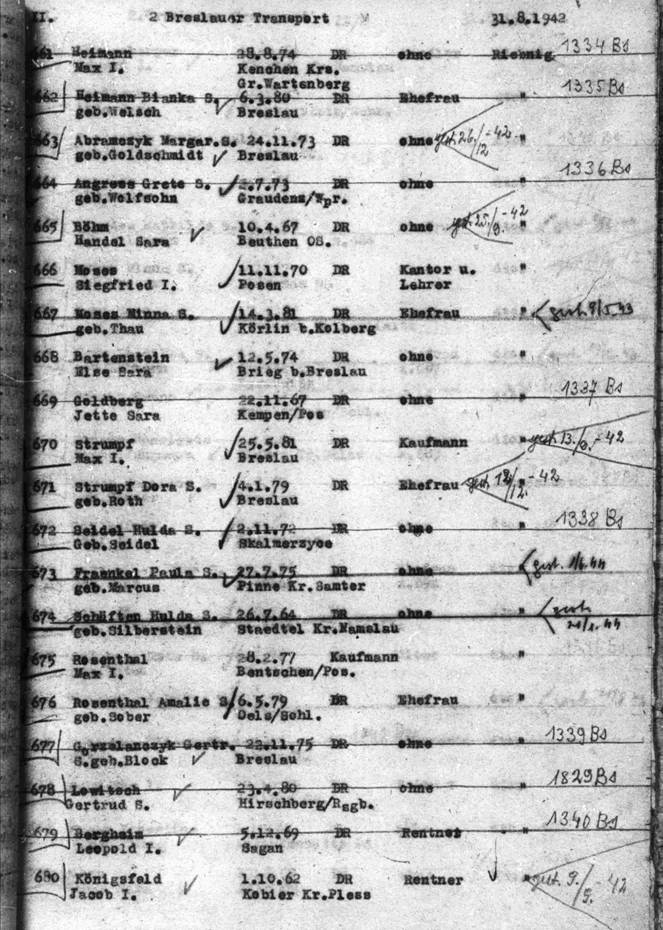 II. 2 Breslauer Transport 31.8.1942
661 Heimann 28.8.74 DR ohne Riebnig 1334 Bs
Max I. Kenchen Krs.
Gr.Wartenberg
662 Heimann Bianka S. 6.3.80 DR Ehefrau " 1335 Bs
geb.Welsch Breslau
663 Abramczyk Margar.S. 24.11.73 DR ohne gest. 26./12 - 42
geb.Goldschmidt Breslau
664 Angress Grete S. 2.7.73 DR ohne " 1336 Bs
geb.Wolfsohn Graudenz/Wpr.
665 Böhm 10.4.67 DR ohne gest. 25./9. - 42
Handel Sara Beuthen OS.
666 Moses 11.11.70 DR Kantor u. "
Siegfried I. Posen Lehrer
667 Moses Minna S. 14.3.81 DR Ehefrau " gest.
geb.Thau Körlin b.Kolberg
668 Bartenstein 12.5.74 DR ohne "
Else Sara Brieg b.Breslau
669 Goldberg 22.11.67 DR ohne " 1337 Bs
Jette Sara Kempen/Pos
670 Strumpf 25.5.81 DR Kaufmann " gest. 13./9. - 42
Max I. Breslau
671 Strumpf Dora S. 4.1.79 DR Ehefrau gest. 12./12. - 42
geb.Roth Breslau
672 Seidel Hulda S. 2.11.72 DR ohne " 1338 Bs
Geb.Seidel Skalmerzyce
673 Fraenkel Paula S. 27.7.75 DR ohne " gest.
geb.Marcus Pinne Kr.Samter
674 Schäften Hulda S. 26.7.64 DR ohne " gest.
geb.Silberstein Staedtel Kr.Namslau
675 Rosenthal 28.2.77 Kaufmann "
Max I. Bentschen/Pos.
676 Rosenthal Amalie S. 6.5.79 DR Ehefrau "
geb.Sober Oels/Schl.
677 Gorzelanczyk Gertr. 22.11.75 DR ohne " 1339 Bs
S.geb.Block Breslau
678 Lewitsch 23.4.80 DR ohne " 1829 Bs
Gertrud S. Hirschberg/Rsgb.
679 Bergheim 5.12.69 DR Rentner " 1340 Bs
Leopold I. Sagan
680 Königsfeld 1.10.62 DR Rentner " gest. 9./9. - 42
Jacob I. Kobier Kr.Pless